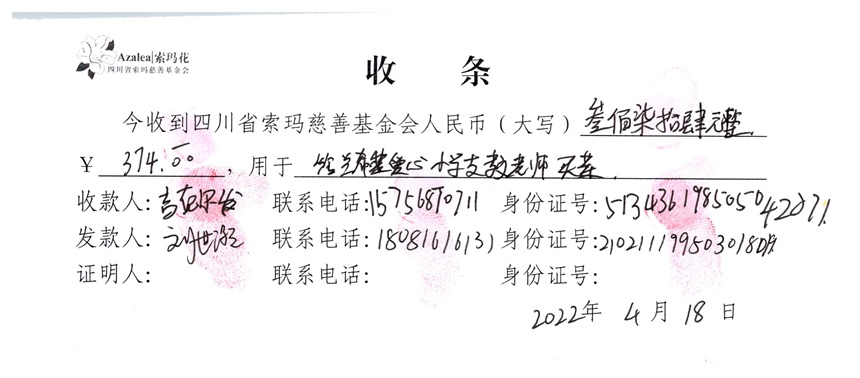 Azalea|索玛花
四川省索玛慈善基金会
收 条
今收到四川省索玛慈善基金会人民币（大写）叁佰柒拾肆元整.
￥ 374.00 ，用于 爱心小学支教老师买菜.
收款人: 联系电话:15756810711 身份证号:
发款人: 联系电话:18081616131 身份证号:
证明人: 联系电话: 身份证号:
2022年 4 月 18 日